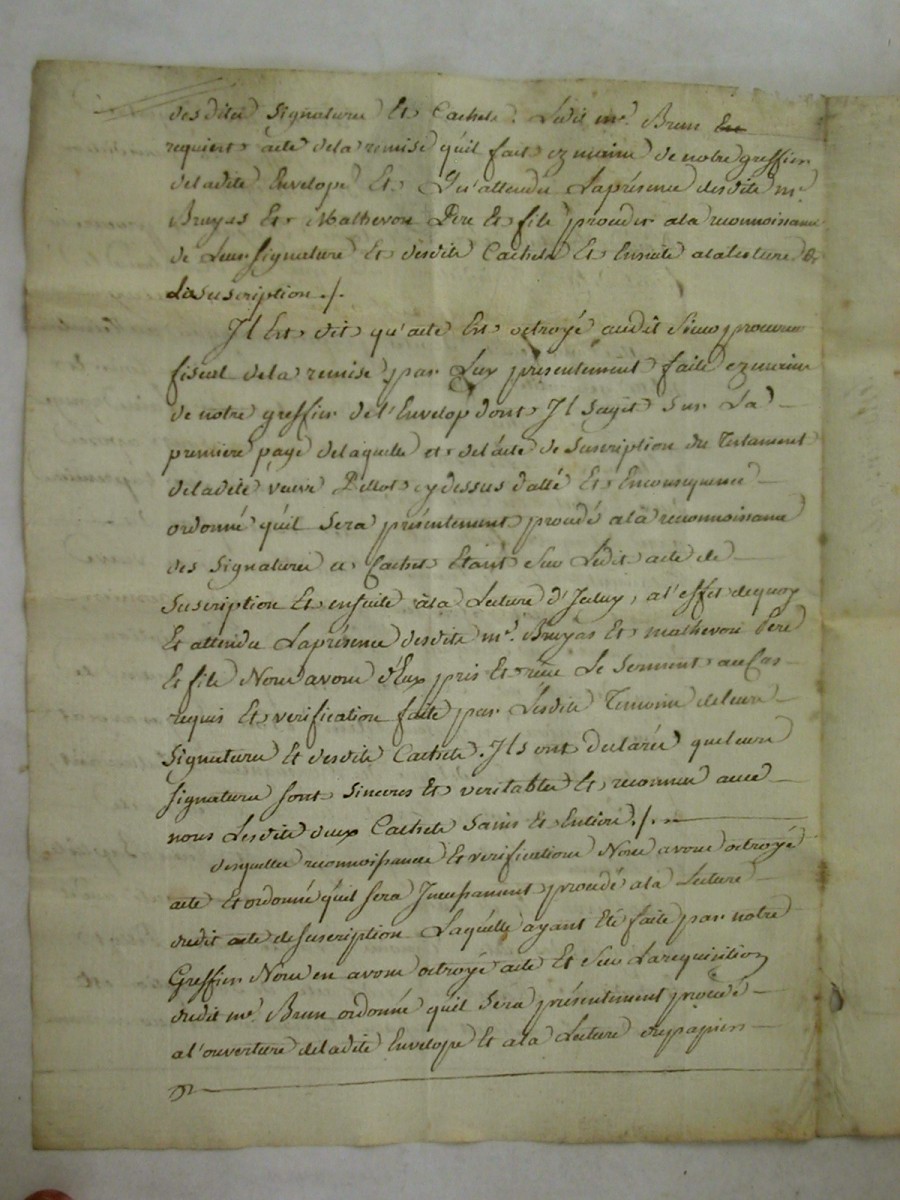 desdites signatures Et Cachets. Ledit mr. Brun
requiert acte dela remise qu'il fait ez mains de notre greffier
deladite Envelope Et Qu'attendu Laprésence desdits mrs
Bruyas Et Mathevon Pere Et fils proceder ala reconnoissance
de Leurs signatures Et desdits Cachets Et Ensuite alalecture de
La suscription ./.
Il Est dit qu'acte Est octroyé audit Sieur procureur
fiscal dela remise par Luy présentement faite ez mains
de notre greffier de l'Envelop dont Il sagit sur La
premiere page delaquelle est del'acte de Suscription du Testament
deladite veuve Pillot cy dessus datté Et Enconsequence
ordonné qu'il sera présentement procedé ala reconnoissance
des signatures et Cachet Etant sur Ledit acte de
Suscription Et ensuite àla Lecture d'Iceluy, a l'effet dequoy
Et attendu Laprésence desdits mrs. Bruyas Et mathevon Pere
Et fils Nous avons d'Eux pris Et reçu Le serment au Cas
requis Et verification faite par Lesdits Temoins deleurs
Signatures Et desdits Cachets. Ils ont declarés queleurs
signatures sont sinceres Et veritables Et reconnu avec
nous Lesdits deux Cachets sains Et Entiers ./.
desquelles reconnoissances Et verifications Nous avons octroyé
acte Et ordonné qu'il sera Incessament procedé ala Lecture
dudit acte desuscription Laquelle ayant Eté faite par notre
Greffier Nous en avons octroyé acte Et sur Larequisition
dudit mr. Brun ordonné qu'il sera présentement procedé
a l'ouverture deladite Envelope Et ala Lecture dupapier